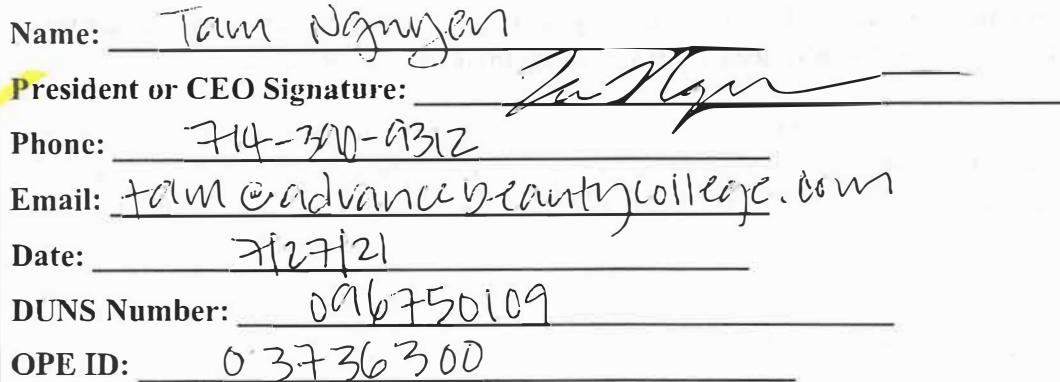 Name: Tam Nguyen
President or CEO Signature:
Phone: 714-390-9312
Email: tam@advancebeautycollege.com
Date: 7/27/21
DUNS Number: 096750109
OPE ID: 03736300